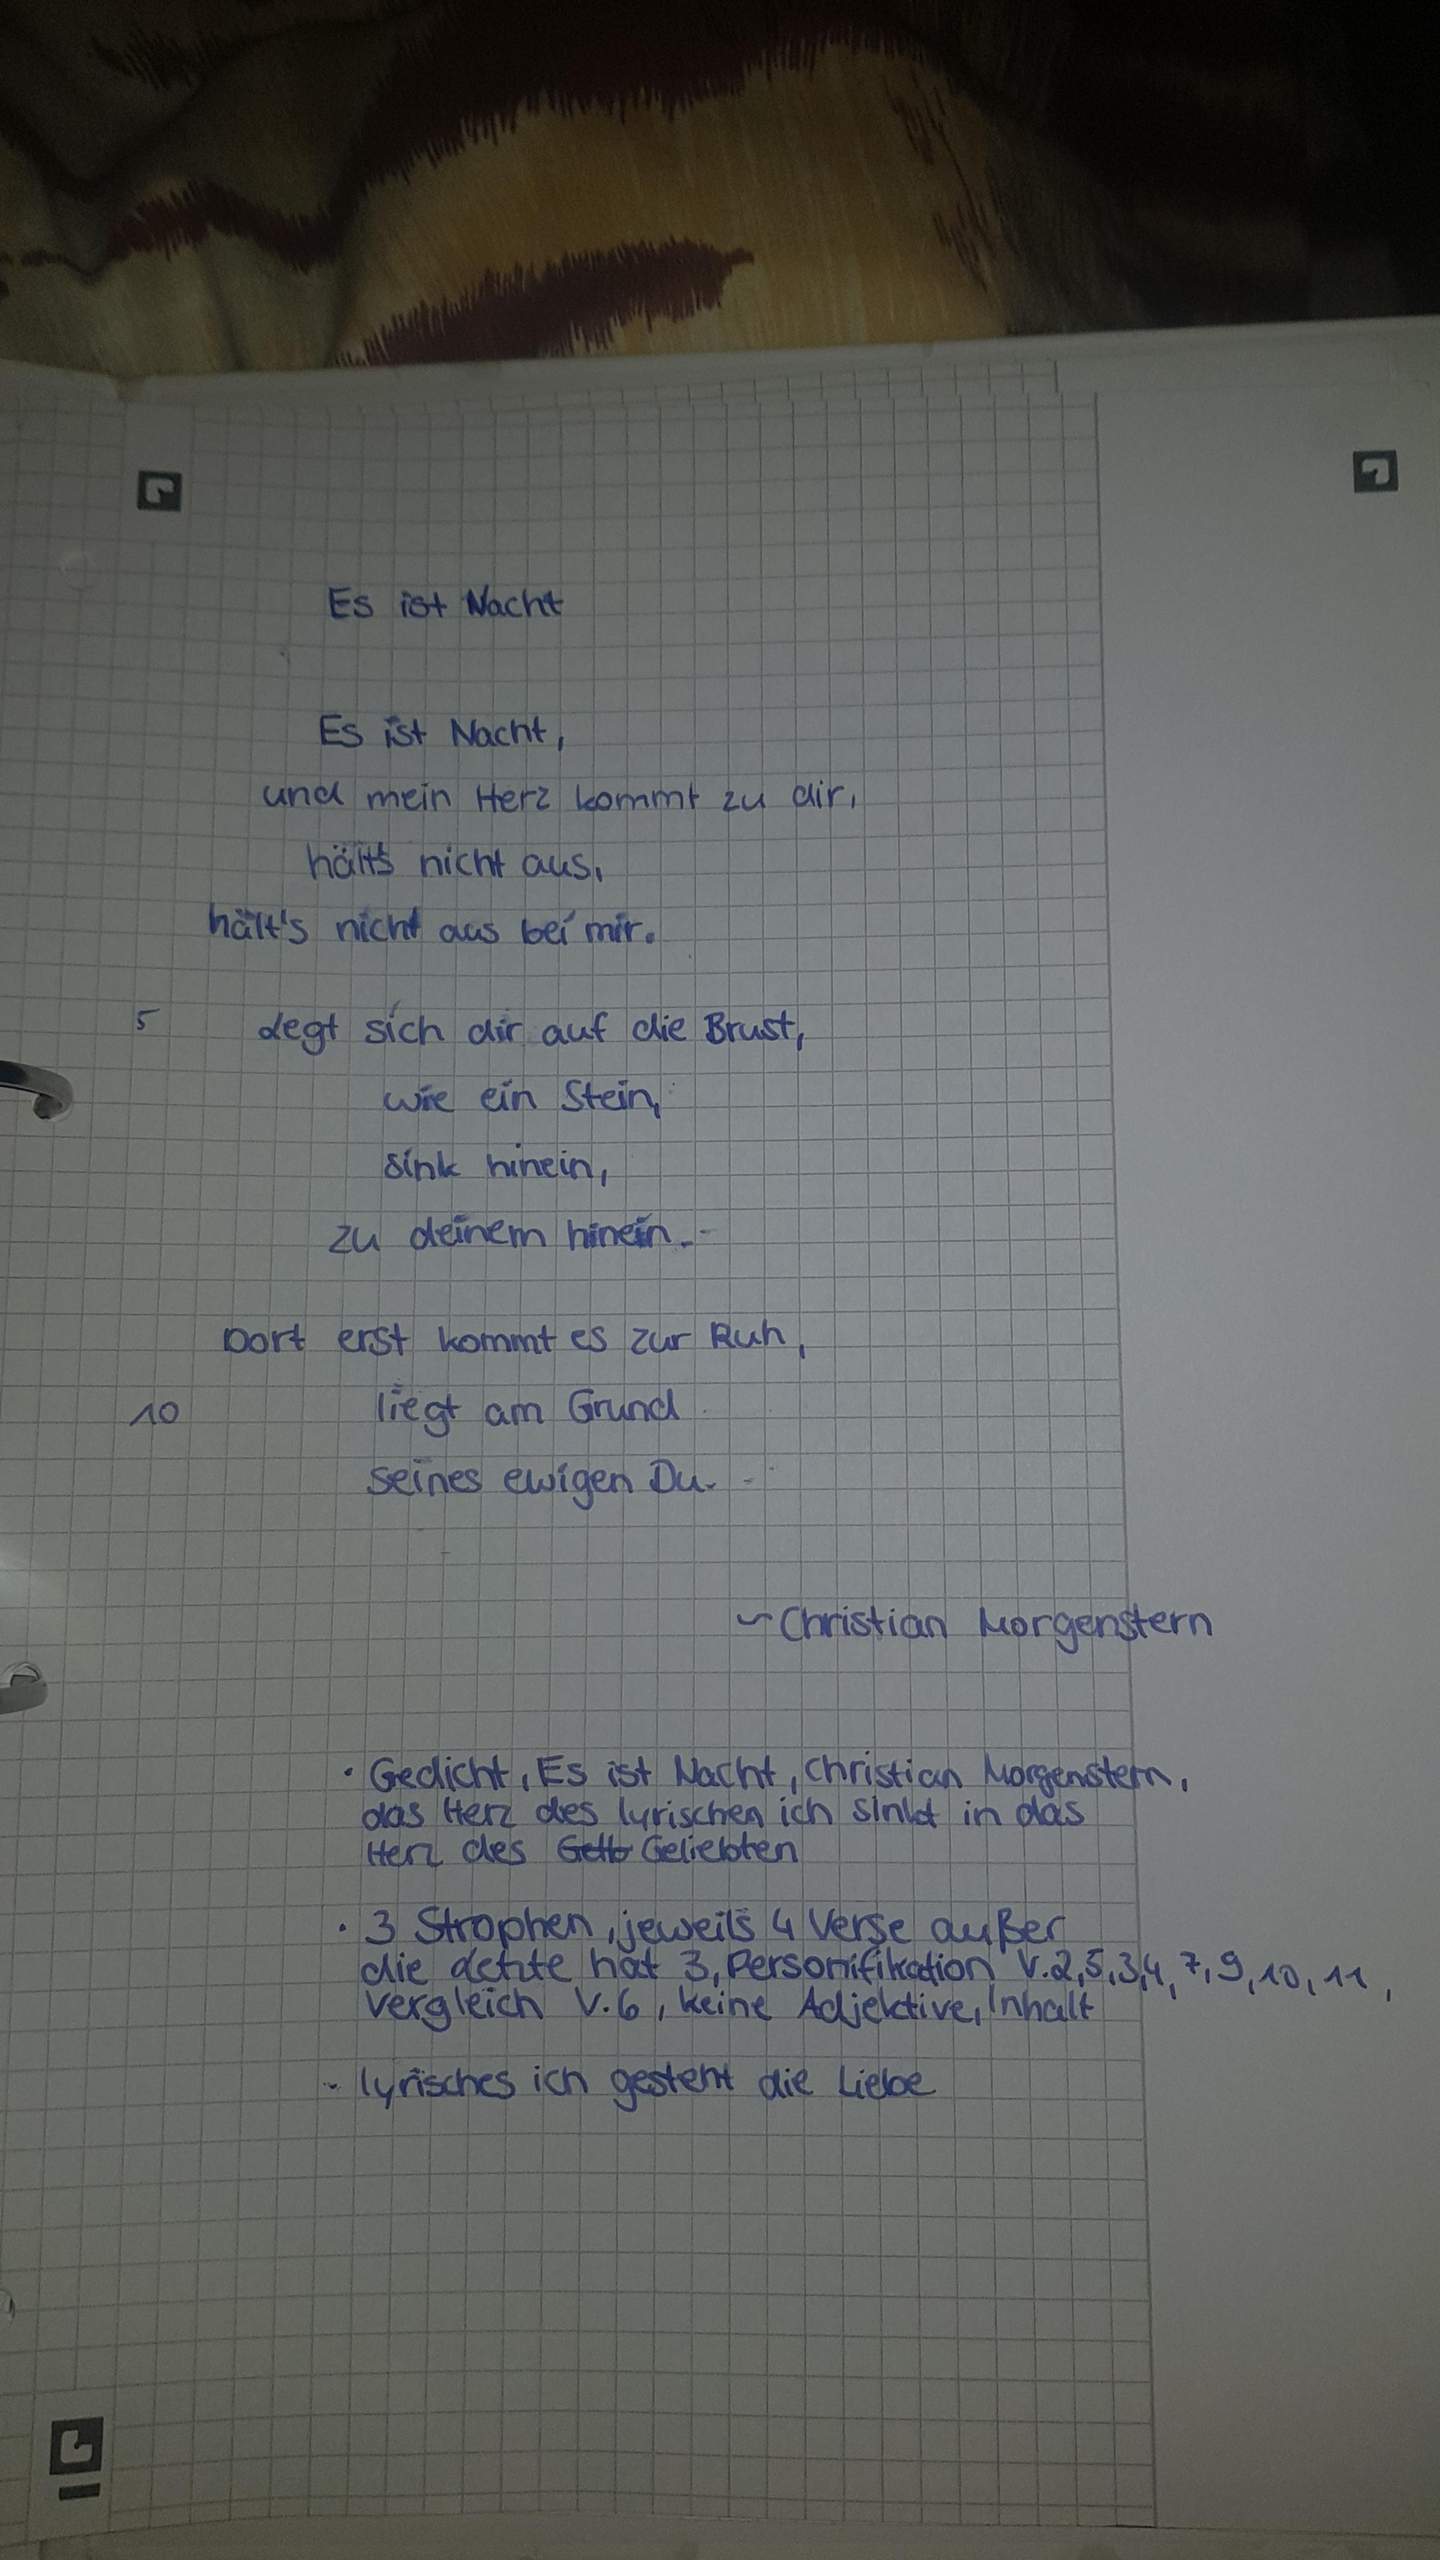 Es ist Nacht
Es ist Nacht,
und mein Herz kommt zu dir,
hält's nicht aus,
hält's nicht aus bei mir.
5 Legt sich dir auf die Brust,
wie ein Stein,
sink hinein,
zu deinem hinein.
Dort erst kommt es zur Ruh,
10 liegt am Grund
seines ewigen Du.
~Christian Morgenstern
• Gedicht, Es ist Nacht, Christian Morgenstern,
das Herz des lyrischen ich sinkt in das
Herz des Geliebten
• 3 Strophen, jeweils 4 Verse außer
die letzte hat 3, Personifikation V.2,5,3,4,7,9,10,11,
Vergleich V.6, keine Adjektive, Inhalt
- lyrisches ich gesteht die Liebe